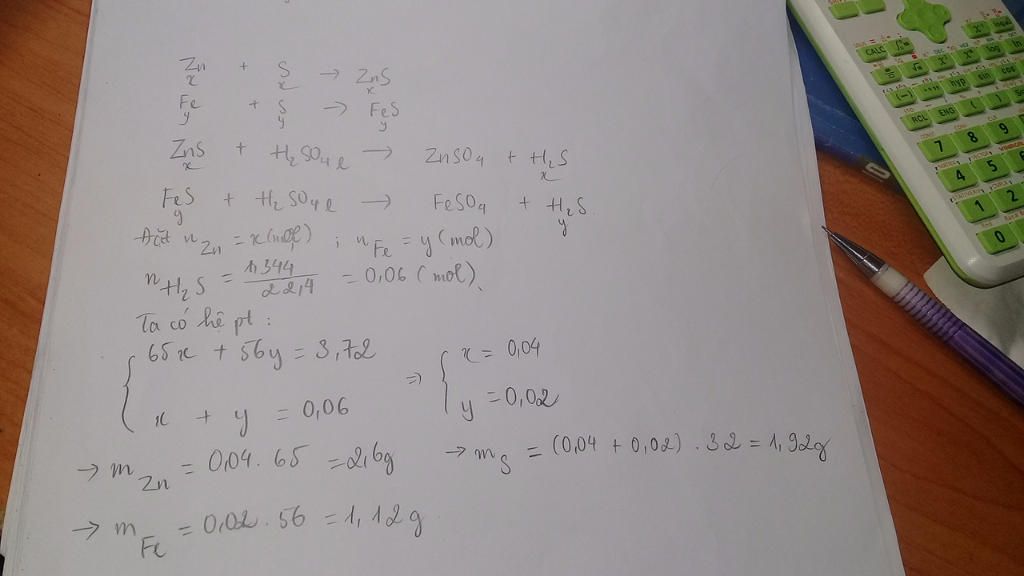 Zn + S → ZnS
x x x
Fe + S → FeS
y y y
ZnS + H₂SO₄ l → ZnSO₄ + H₂S
x x
FeS + H₂SO₄ l → FeSO₄ + H₂S
y y
Đặt n Zn = x (mol) ; n Fe = y (mol)
n H₂S = 1,344 / 22,4 = 0,06 (mol)
Ta có hệ pt :
{ 65x + 56y = 3,72 ⇒ { x = 0,04
x + y = 0,06 y = 0,02
→ m Zn = 0,04 . 65 = 2,6g → m S = (0,04 + 0,02) . 32 = 1,92g
→ m Fe = 0,02 . 56 = 1,12g
CALC
hyp sin cos
(-) °'"
RCL ENG ( )
7 8 9
4 5
1 2
0